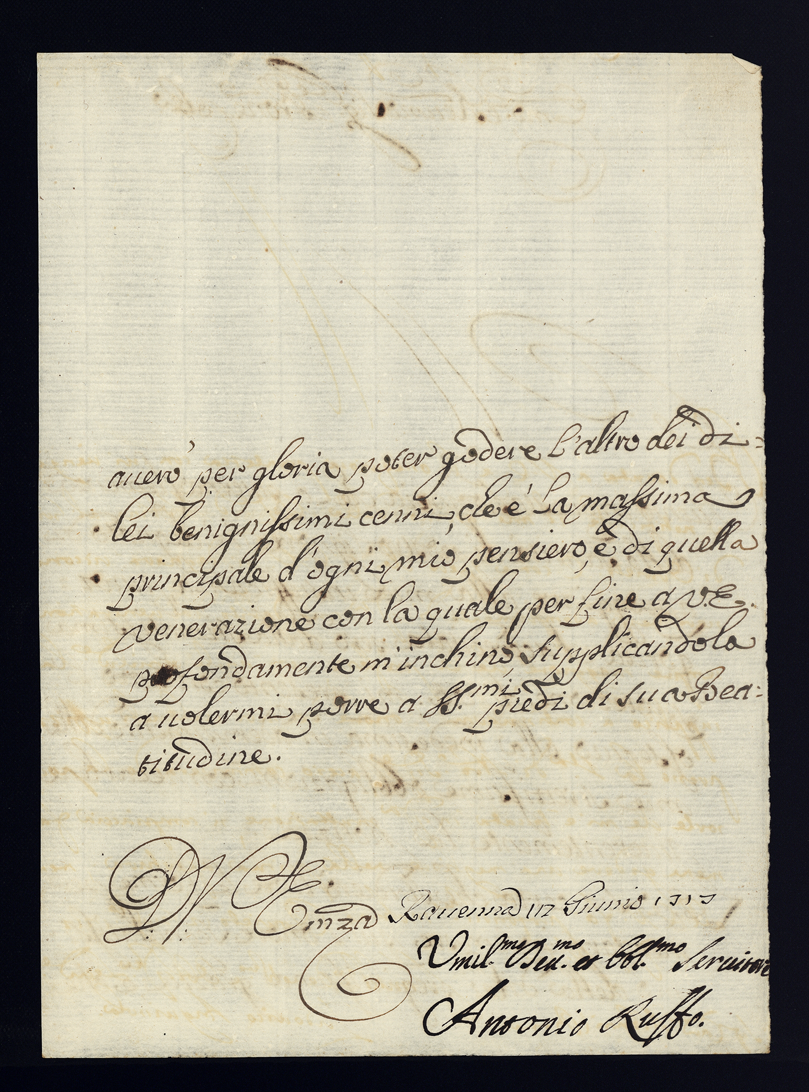 auerò per gloria poter godere l'altro dei di=
lei benignissimi cenni, che è la massima
principale d'ogni mio pensiero, e di quella
venerazione con la quale per fine a V.E.
profondamente m'inchino supplicandola
a volermi porre a SS.mi piedi di sua Bea=
titudine.
D V Eminza Ravenna 17 Giunio 1717
Umil.mo Deu.mo et Obl.mo Seruitore
Antonio Ruffo.